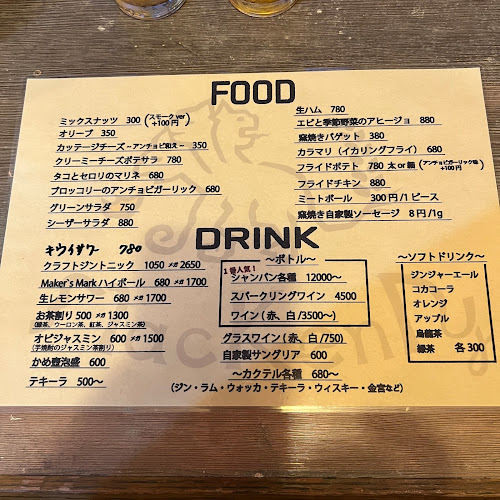 FOOD
ミックスナッツ 300 (スモークver +100円)
オリーブ 350
カッテージチーズ~アンチョビ和え~ 350
クリーミーチーズポテサラ 780
タコとセロリのマリネ 680
ブロッコリーのアンチョビガーリック 680
グリーンサラダ 750
シーザーサラダ 880
生ハム 780
エビと季節野菜のアヒージョ 880
窯焼きバゲット 380
カラマリ(イカリングフライ) 680
フライドポテト 780 太or細(アンチョビガーリック味 +100円)
フライドチキン 880
ミートボール 300円/1ピース
窯焼き自家製ソーセージ 8円/1g
DRINK
キウイサワー 780
クラフトジントニック 1050 メガ2650
Maker's Mark ハイボール 680 メガ1700
生レモンサワー 680 メガ1700
お茶割り 500 メガ1300
(緑茶、ウーロン茶、紅茶、ジャスミン茶)
オビジャスミン 600 メガ1500
(芋焼酎のジャスミン茶割り)
かめ壺泡盛 600
テキーラ 500~
~ボトル~
1番人気!
シャンパン各種 12000~
スパークリングワイン 4500
ワイン(赤、白/3500~)
グラスワイン(赤、白/750)
自家製サングリア 600
~カクテル各種 680~
(ジン・ラム・ウォッカ・テキーラ・ウィスキー・金宮など)
~ソフトドリンク~
ジンジャーエール
コカコーラ
オレンジ
アップル
烏龍茶
緑茶 各300